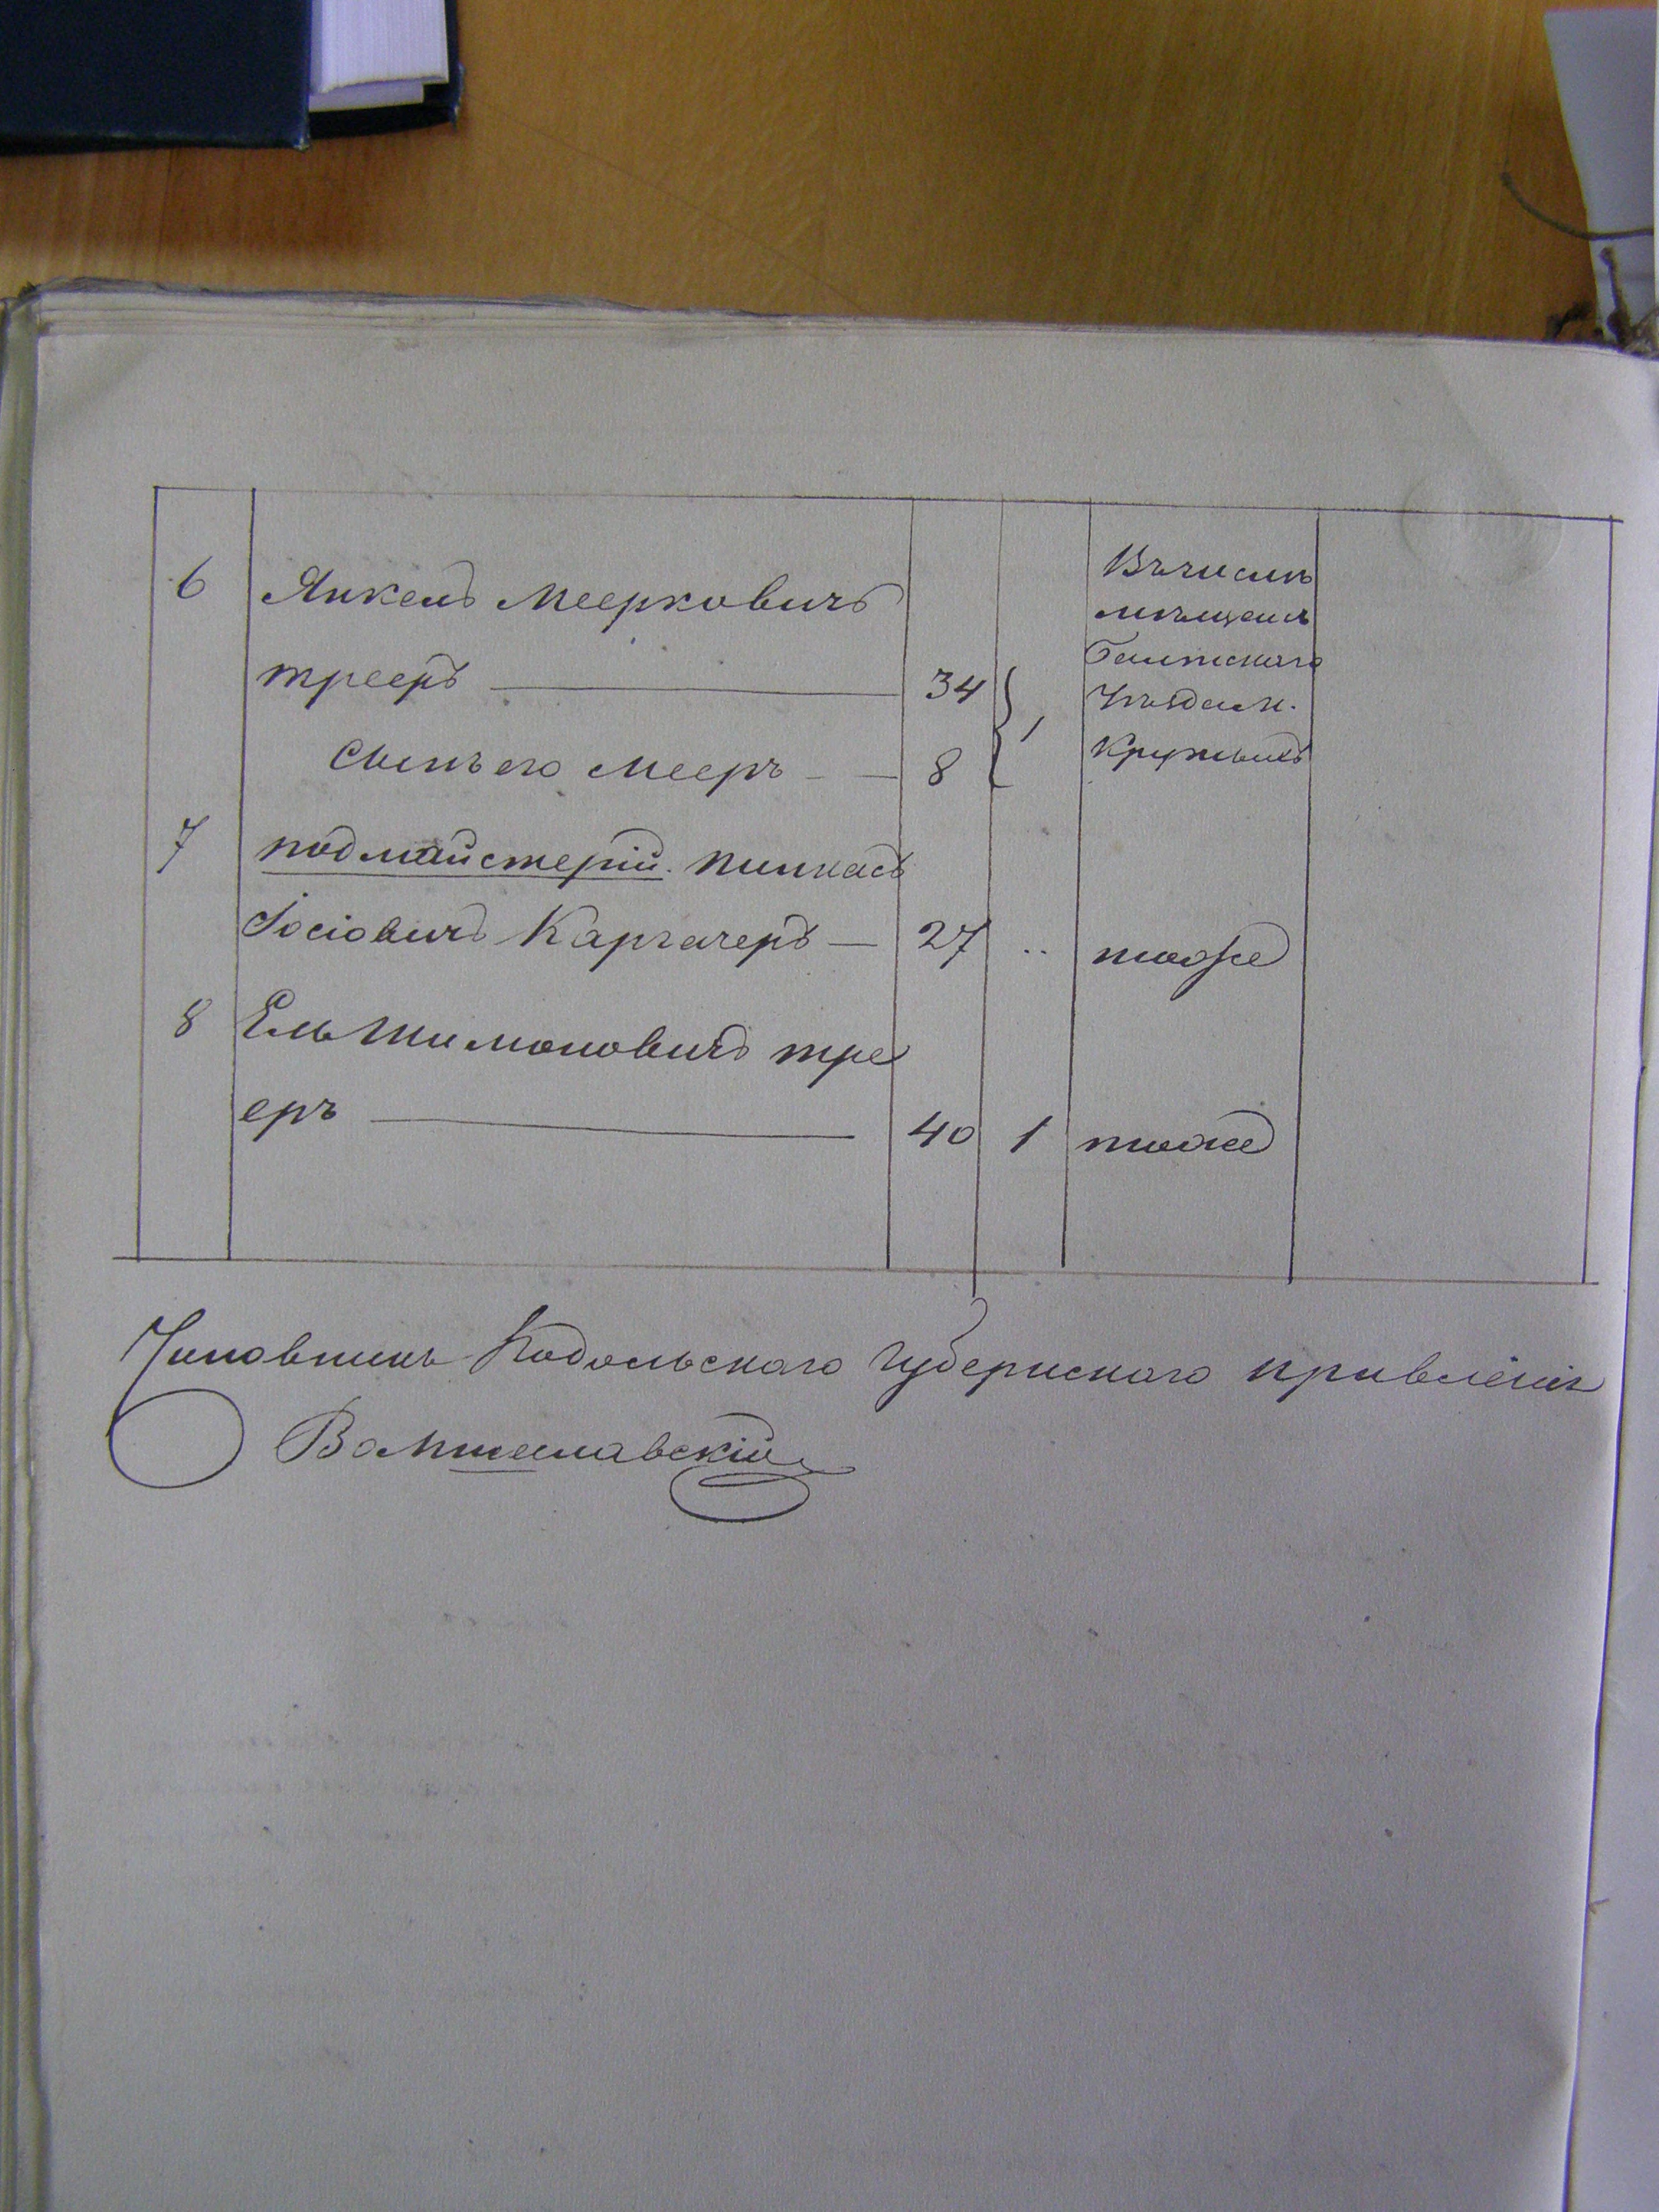 6 Янкель Меерковичъ
трееръ 34
сынъ его Мееръ 8 1
Въ числѣ
мѣщанъ
Балтскаго
Уѣзда м.
7 подмайстерій. Пинкасъ
Іосіовичъ Каргачеръ 27 .. тоже
8 Ель Шимоновичъ тре
еръ 40 1 тоже
Чиновникъ Подольскаго Губернскаго правленія